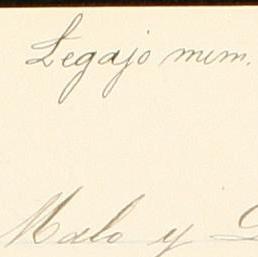 Legajo núm.
Malo y